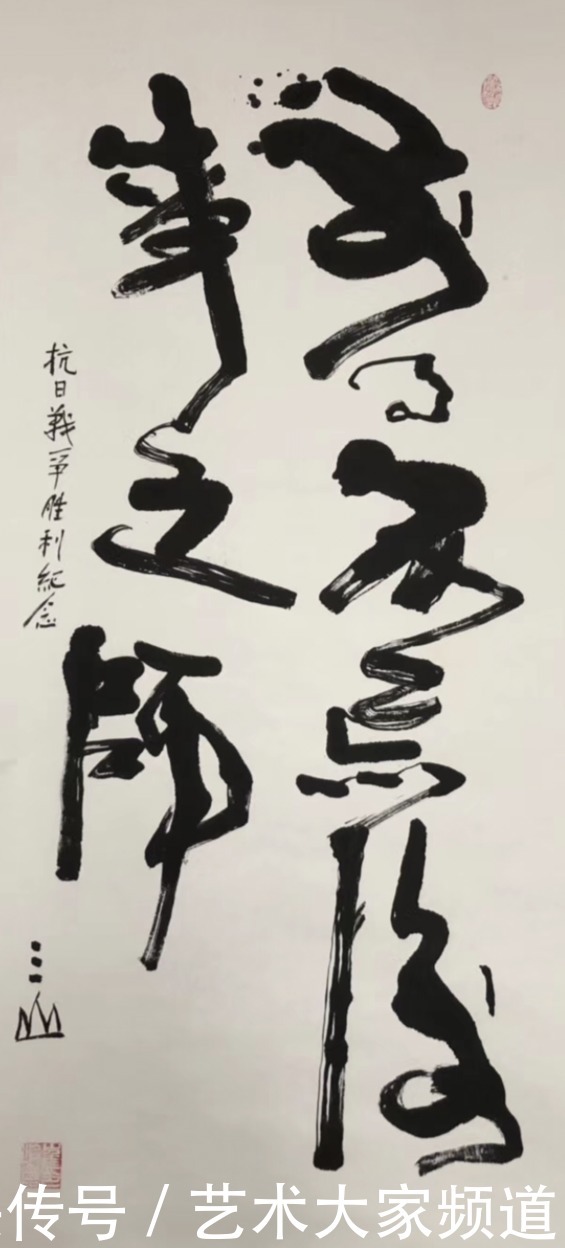 前事不忘後
事之師
抗日戰争胜利紀念
传号 / 艺术大家频道